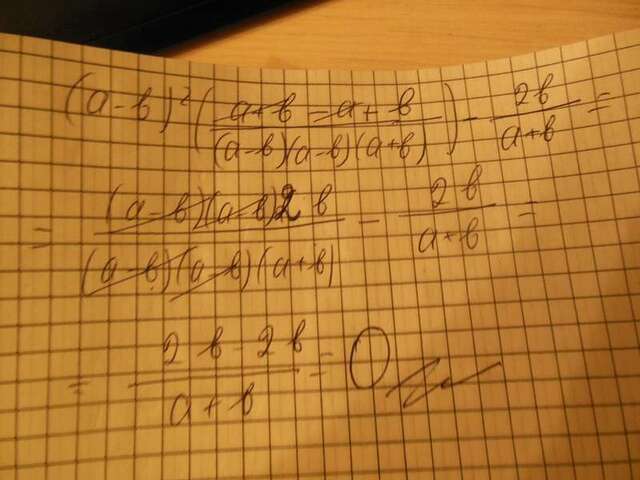 (a-b)²((a+b-a+b)/((a-b)(a-b)(a+b))) - 2b/(a+b) =
= ((a-b)(a-b)2b)/((a-b)(a-b)(a+b)) - 2b/(a+b) =
= (2b-2b)/(a+b) = 0